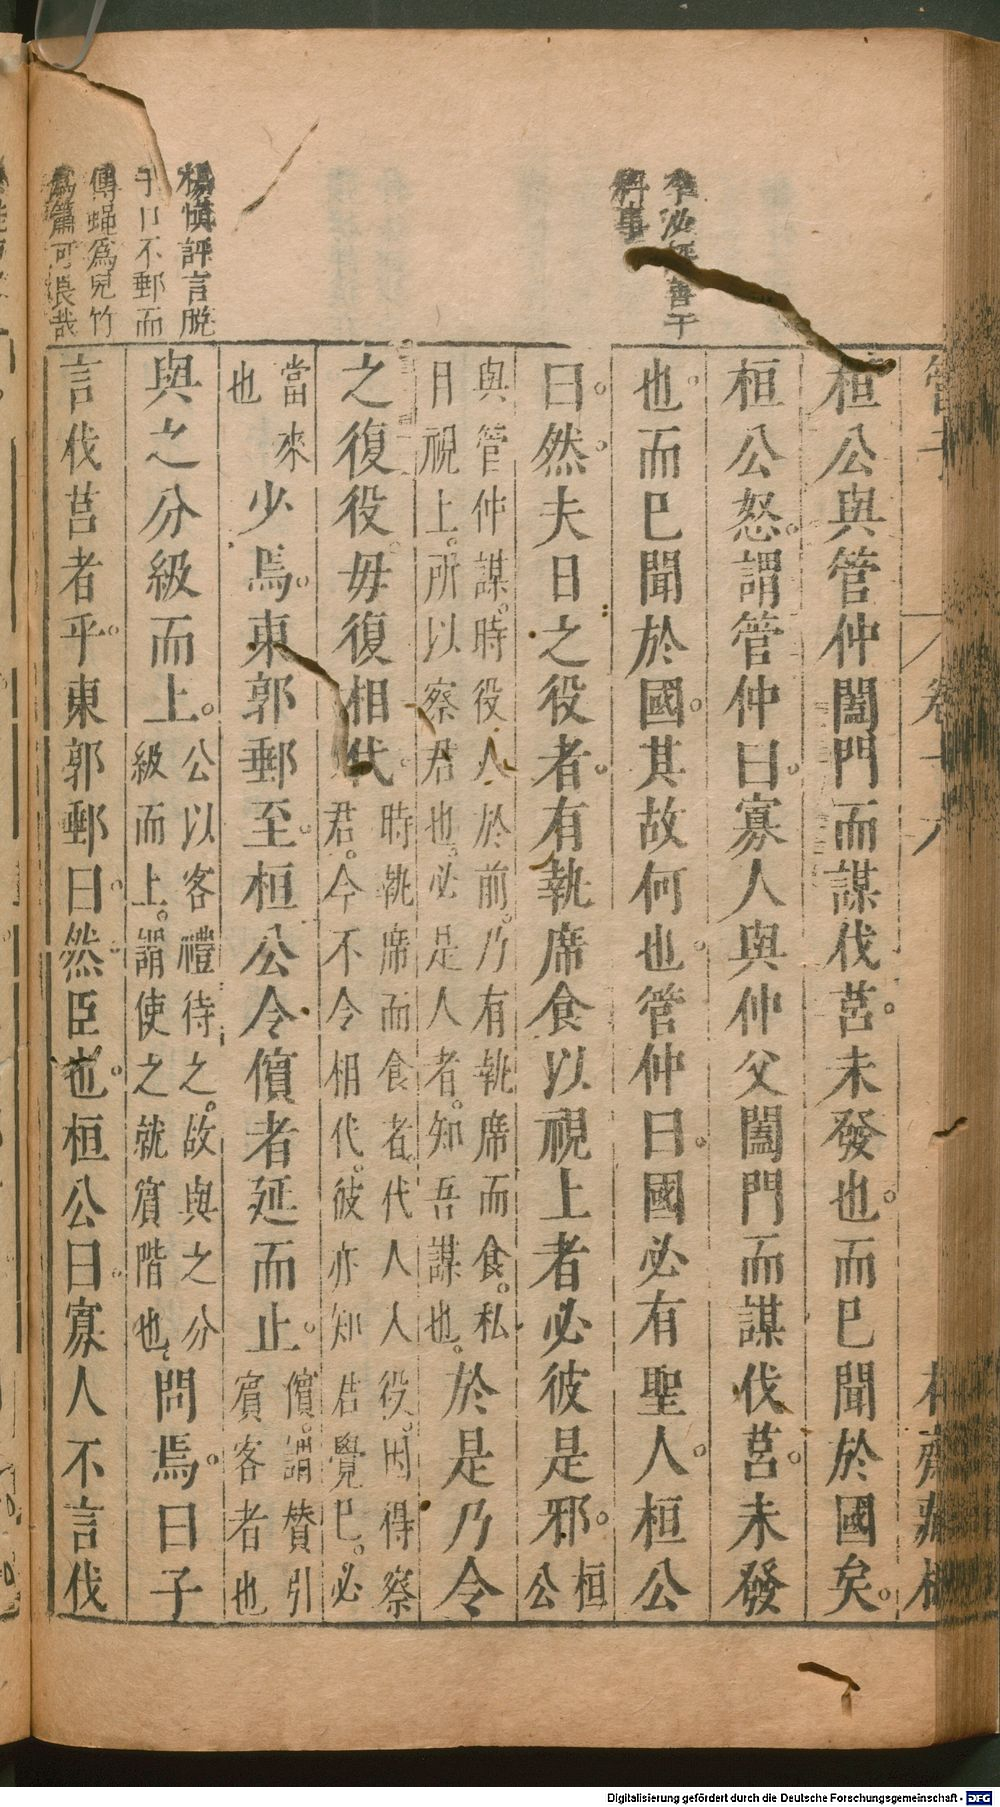 管子
卷十六
桓公與管仲闔門而謀伐莒。未發也。而巳聞於國矣。
桓公怒。謂管仲曰。寡人與仲父闔門而謀伐莒。未發
也。而巳聞於國。其故何也。管仲曰。國必有聖人。桓公
曰。然。夫日之役者。有執席食以視上者必彼是邪。桓公
與管仲謀。時役人於前。乃有執席而食。私
目視上。所以察君也。必是人者。知吾謀也。於是乃令
之復役。毋復相代。時執席而食者代人人役。因得察
君。今不令相代。彼亦知君覺巳。必
當來
也少焉。東郭郵至。桓公令儐者延而止。儐。謂贊引
賓客者也
與之分級而上。公以客禮待之。故與之分
級而上。謂使之就賓階也。問焉。曰子
言伐莒者乎。東郭郵曰。然。臣也。桓公曰。寡人不言伐
李泌評善于
料事
楊愼評言脫
于口不郵而
傳蠅為兒竹
為篇可畏哉
Digitalisierung gefördert durch die Deutsche Forschungsgemeinschaft - DFG